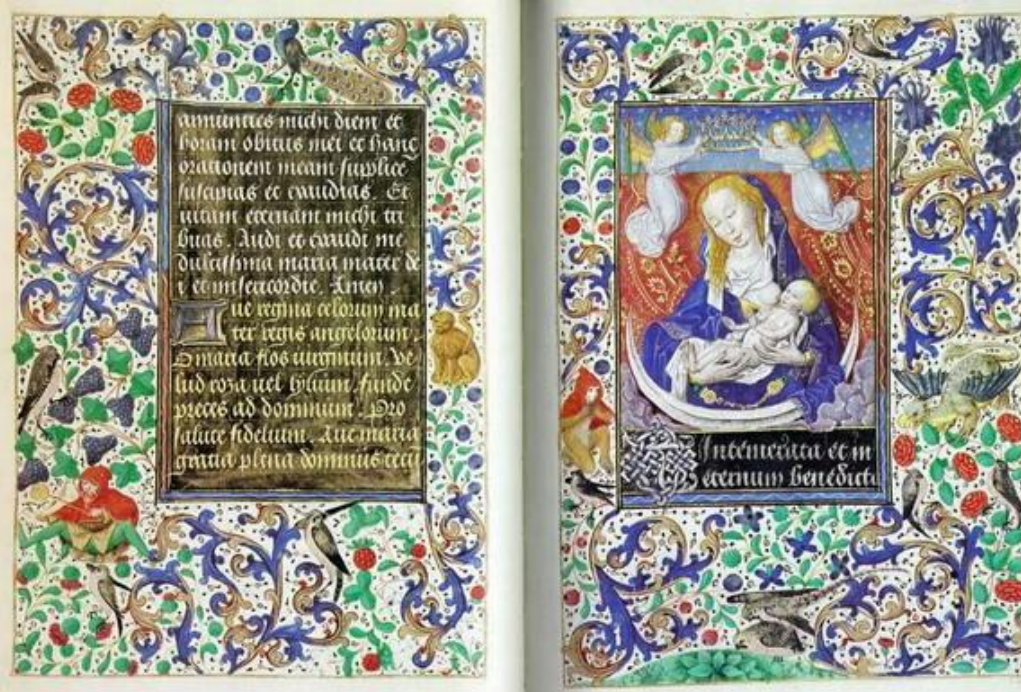 annuncies michi diem et
horam obitus mei et hanc
orationem meam supplice
suscipias et exaudias. Et
uitam eternam michi tri
buas. Audi et exaudi me
dulcissima maria mater de
i et misericordie. Amen.
Aue regina celorum ma
ter regis angelorum.
O maria flos uirginum. Ve
lud roza uel lylium. funde
preces ad dominum. Pro
salute fidelium. Aue maria
gratia plena dominus tecu
Intemerata et in
eternum benedict